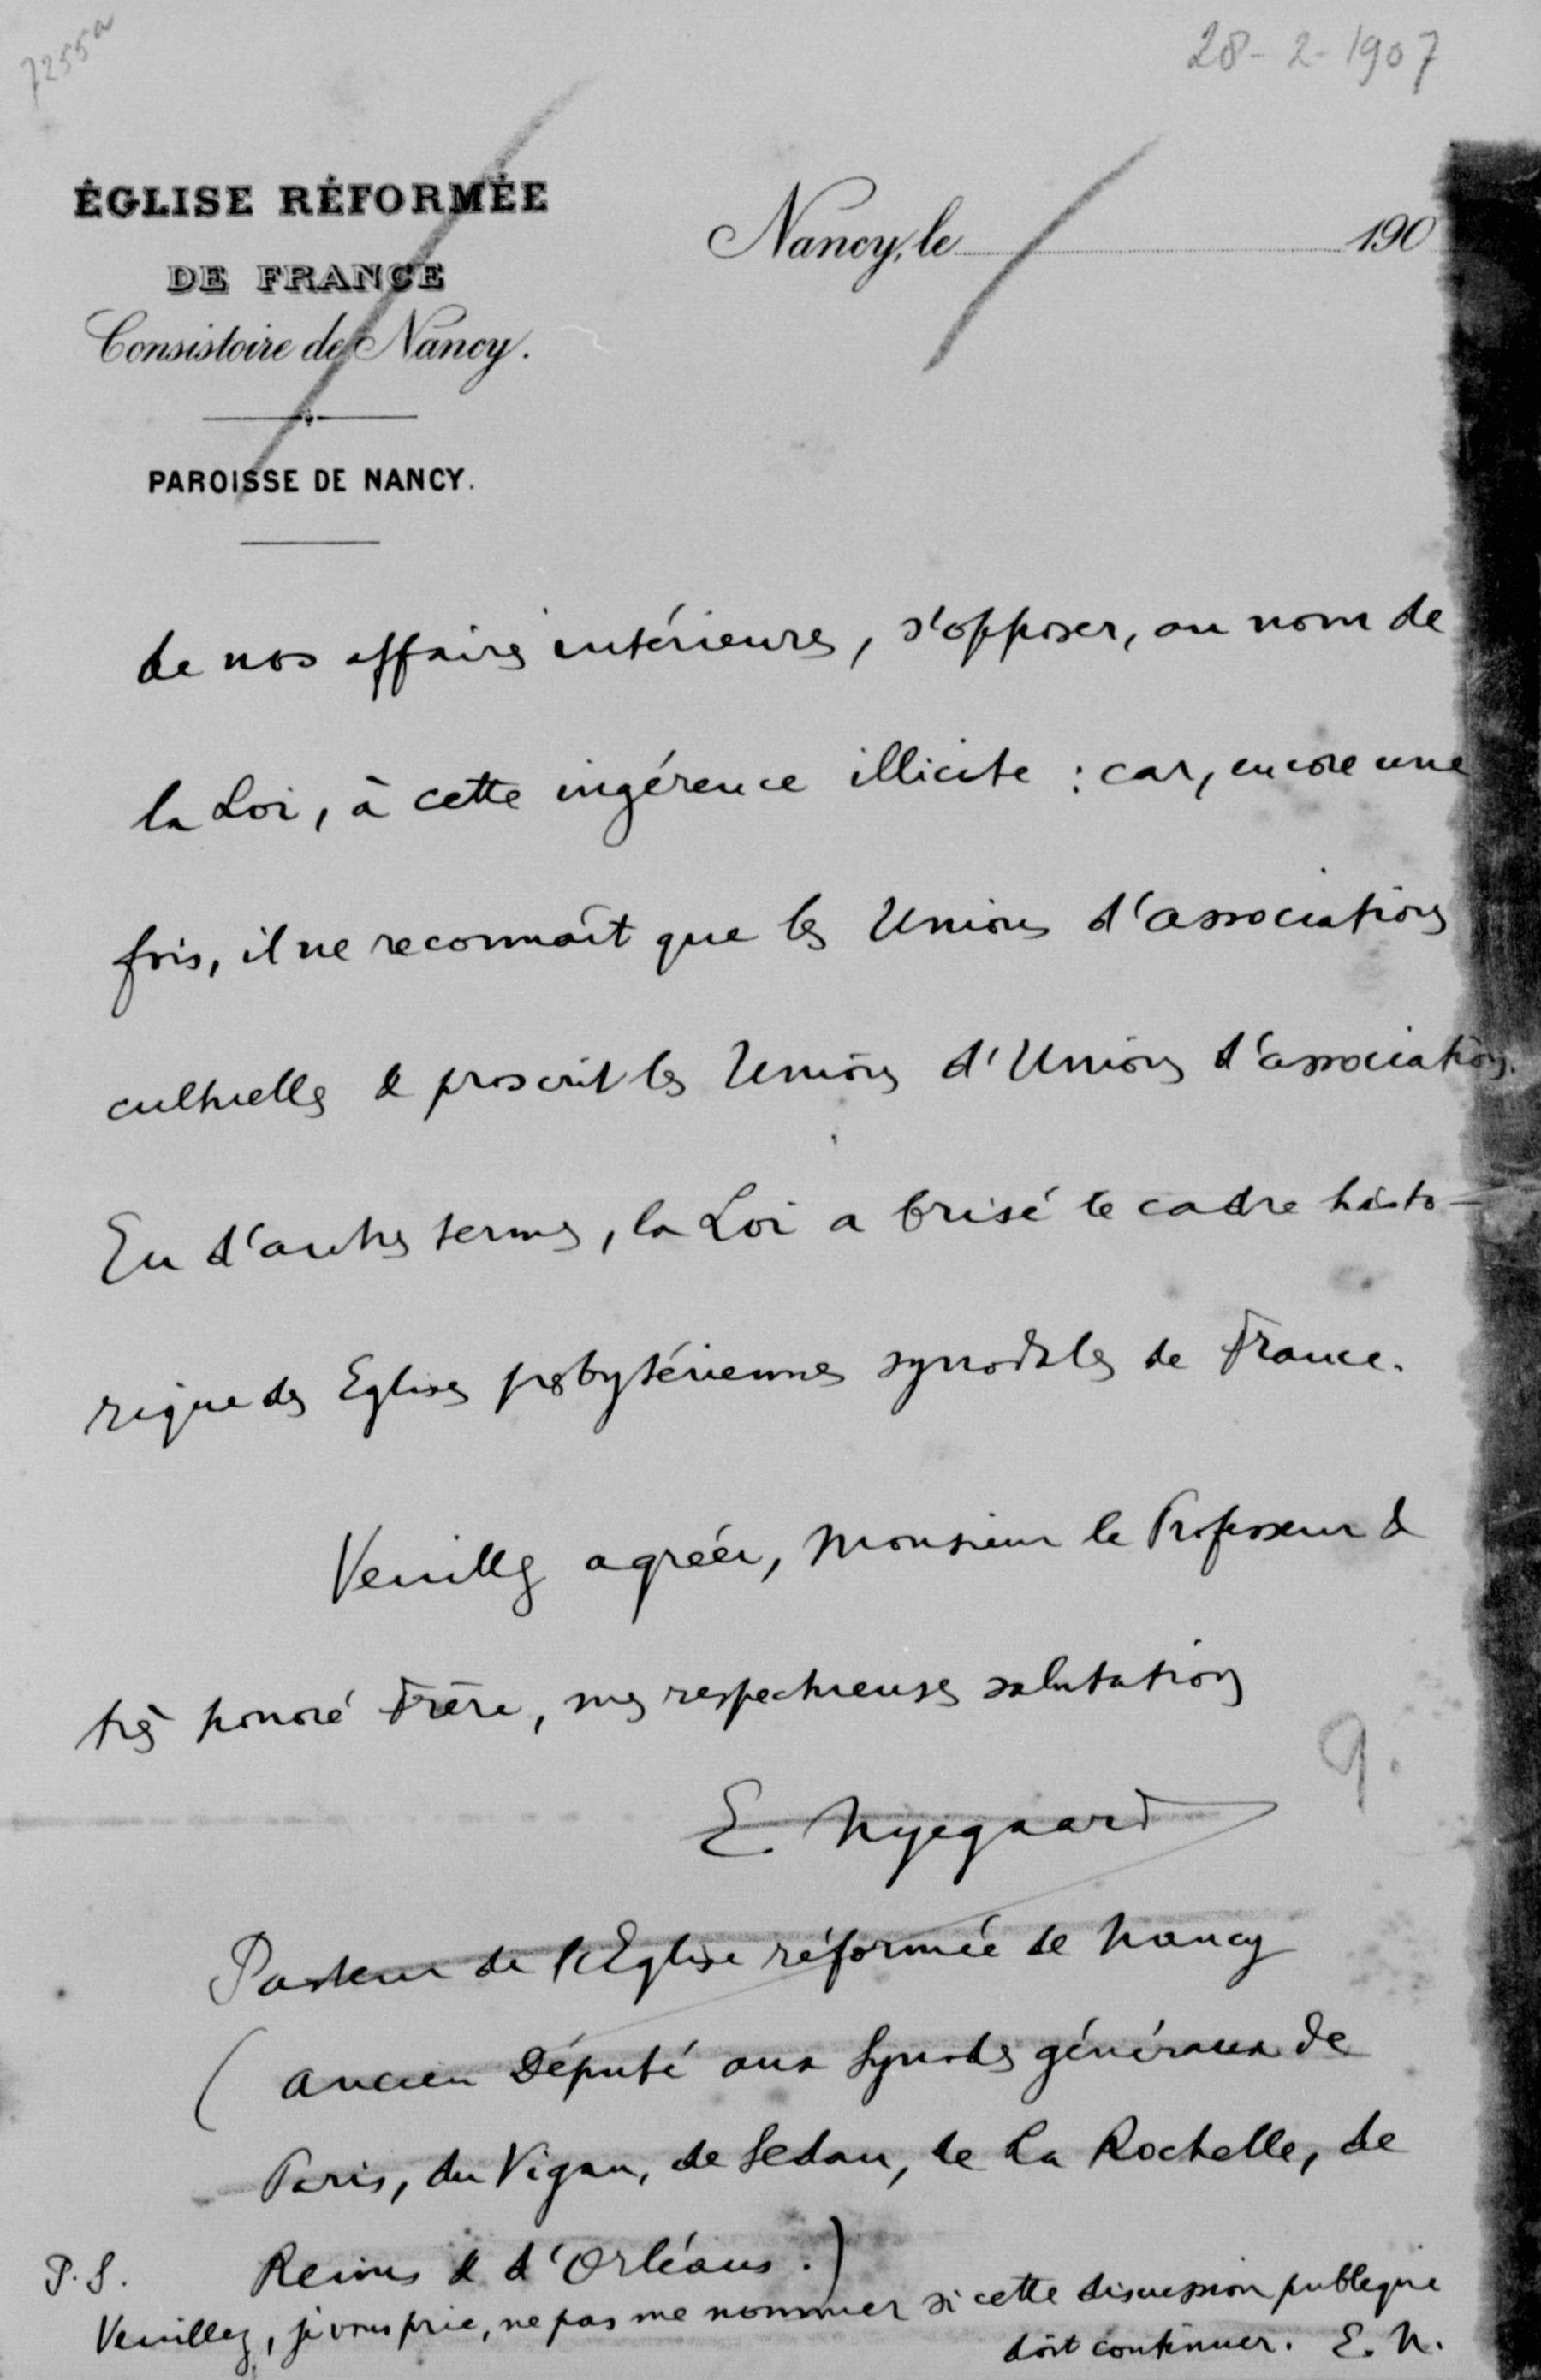 7255a
28-2-1907
ÉGLISE RÉFORMÉE
DE FRANCE
Consistoire de Nancy.
PAROISSE DE NANCY.
Nancy, le 190
de nos affaires intérieures, s'opposer, au nom de
la Loi, à cette ingérence illicite : car, encore une
fois, il ne reconnaît que les Unions d'associations
cultuelles & proscrit les Unions d'Unions d'associations.
En d'autres termes, la Loi a brisé le cadre histo-
rique des Eglises presbytériennes synodales de France.
Veuillez agréer, Monsieur le Professeur &
très honoré Frère, mes respectueuses salutations
9.
E. Nyegaard
Pasteur de l'Eglise réformée de Nancy
(ancien Député aux Synodes généraux de
Paris, du Vigan, de Sedan, de La Rochelle, de
Reims & d'Orléans.)
P.S.
Veuillez, je vous prie, ne pas me nommer si cette discussion publique
doit continuer. E. N.